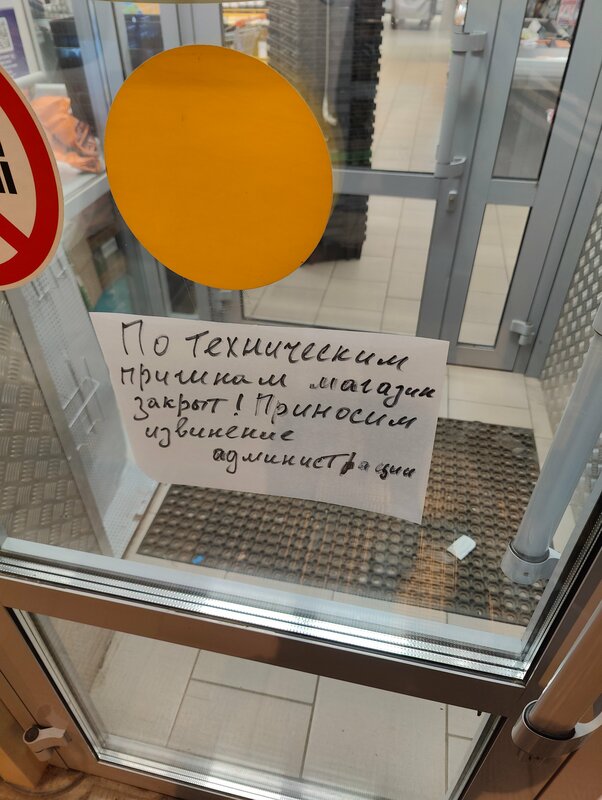 По техническим
причинам магазин
закрыт! Приносим
извинение
администрации